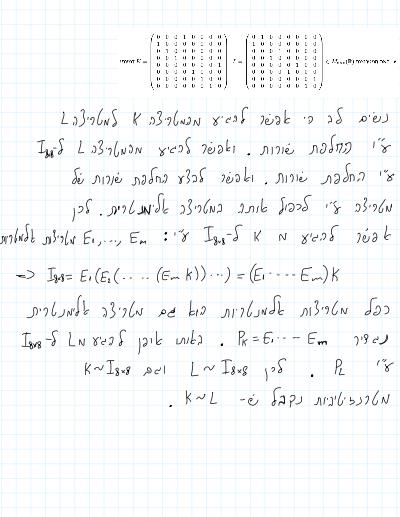 K = L = ∈ M₈ₓ₈(ℝ)
נשים לב כי אפשר להגיע מהמטריצה K למטריצה L
ע"י החלפת שורות. ואפשר להגיע מהמטריצה L ל-I₈ₓ₈
ע"י החלפת שורות. ואפשר לבצע החלפת שורות של
מטריצה ע"י לכפול אותה במטריצה אלמנטרית. לכן
אפשר להגיע מ K ל-I₈ₓ₈ ע"י: E₁,..., Eₘ מטריצות אלמנטריות
=> I₈ₓ₈= E₁(E₂(....(Eₘ K))...) = (E₁ ---- Eₘ)K
כפל מטריצות אלמנטריות הוא גם מטריצה אלמנטרית
נגדיר P_K = E₁--- Eₘ . באותו אופן להגיע מ L ל-I₈ₓ₈
ע"י P_L . לכן L~I₈ₓ₈ וגם K~I₈ₓ₈
מטרנזיטיביות נקבל ש- K~L .